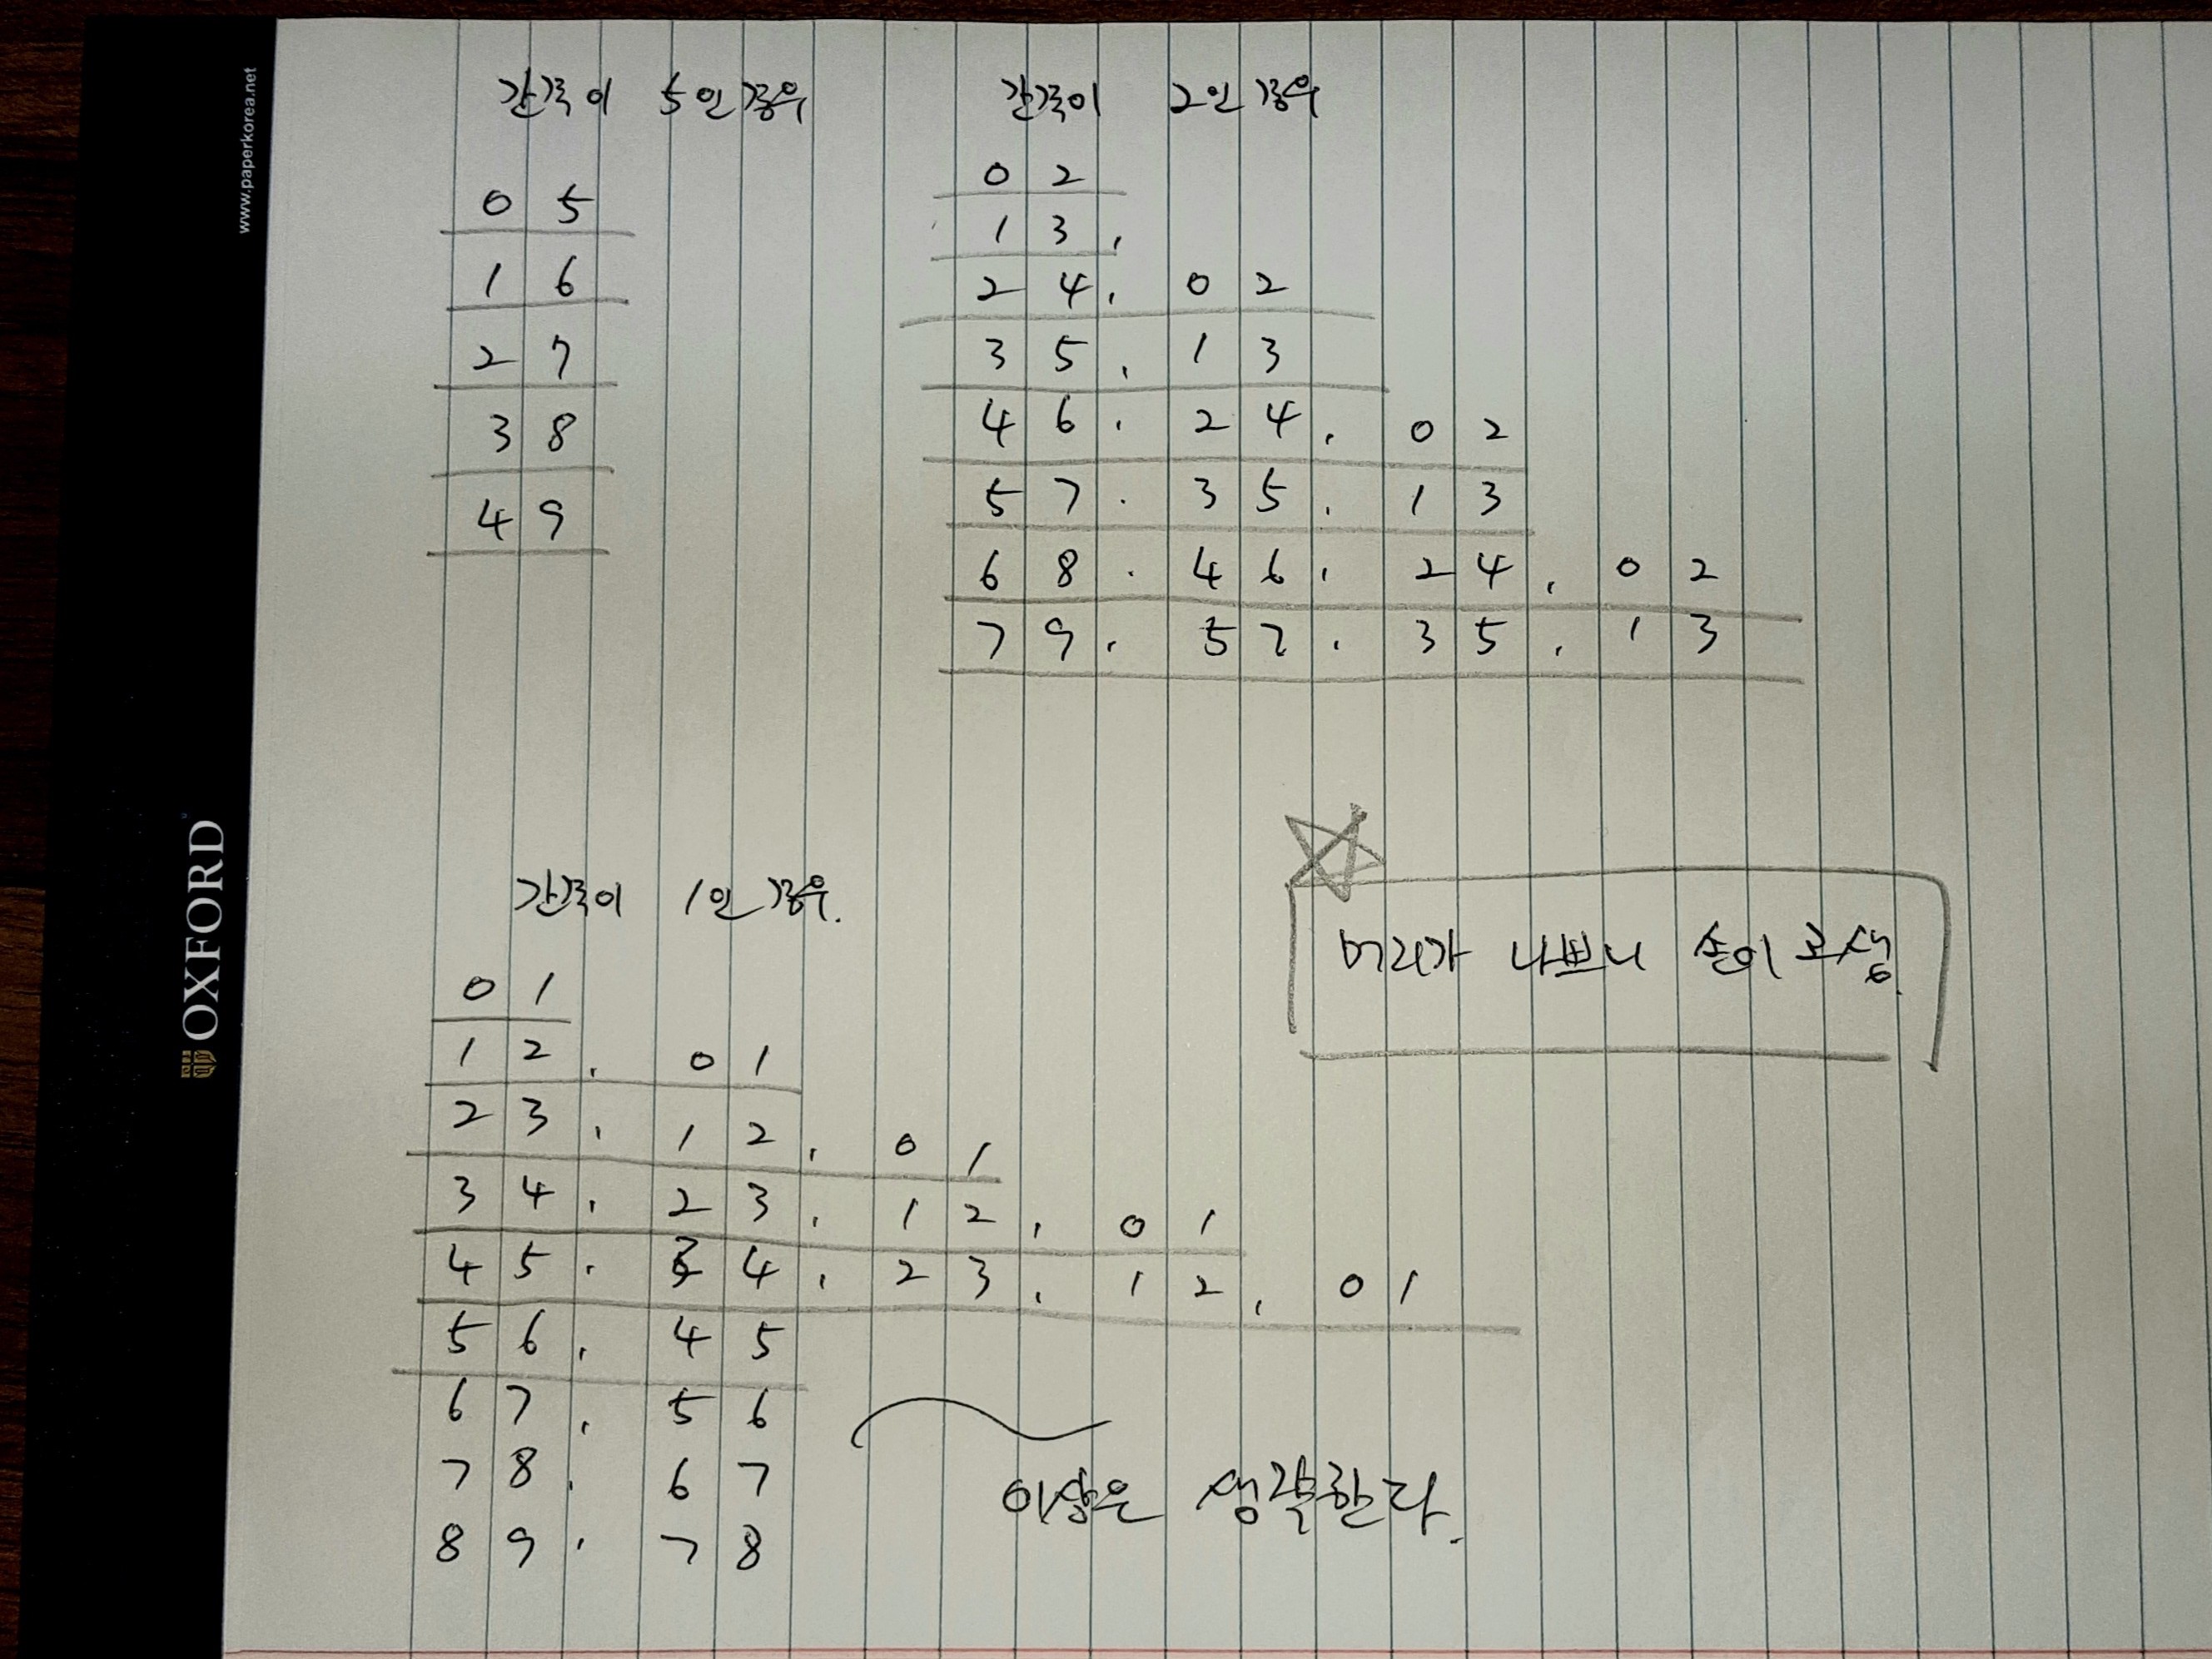 www.paperkorea.net
OXFORD
간격이 5인 경우
0 5
1 6
2 7
3 8
4 9
간격이 2인 경우
0 2
1 3,
2 4, 0 2
3 5, 1 3
4 6, 2 4, 0 2
5 7, 3 5, 1 3
6 8, 4 6, 2 4, 0 2
7 9, 5 7, 3 5, 1 3
간격이 1인 경우.
0 1
1 2, 0 1
2 3, 1 2, 0 1
3 4, 2 3, 1 2, 0 1
4 5, 3 4, 2 3, 1 2, 0 1
5 6, 4 5
6 7, 5 6
7 8, 6 7
8 9, 7 8
이상은 생략한다.
머리가 나쁘니 손이 고생.